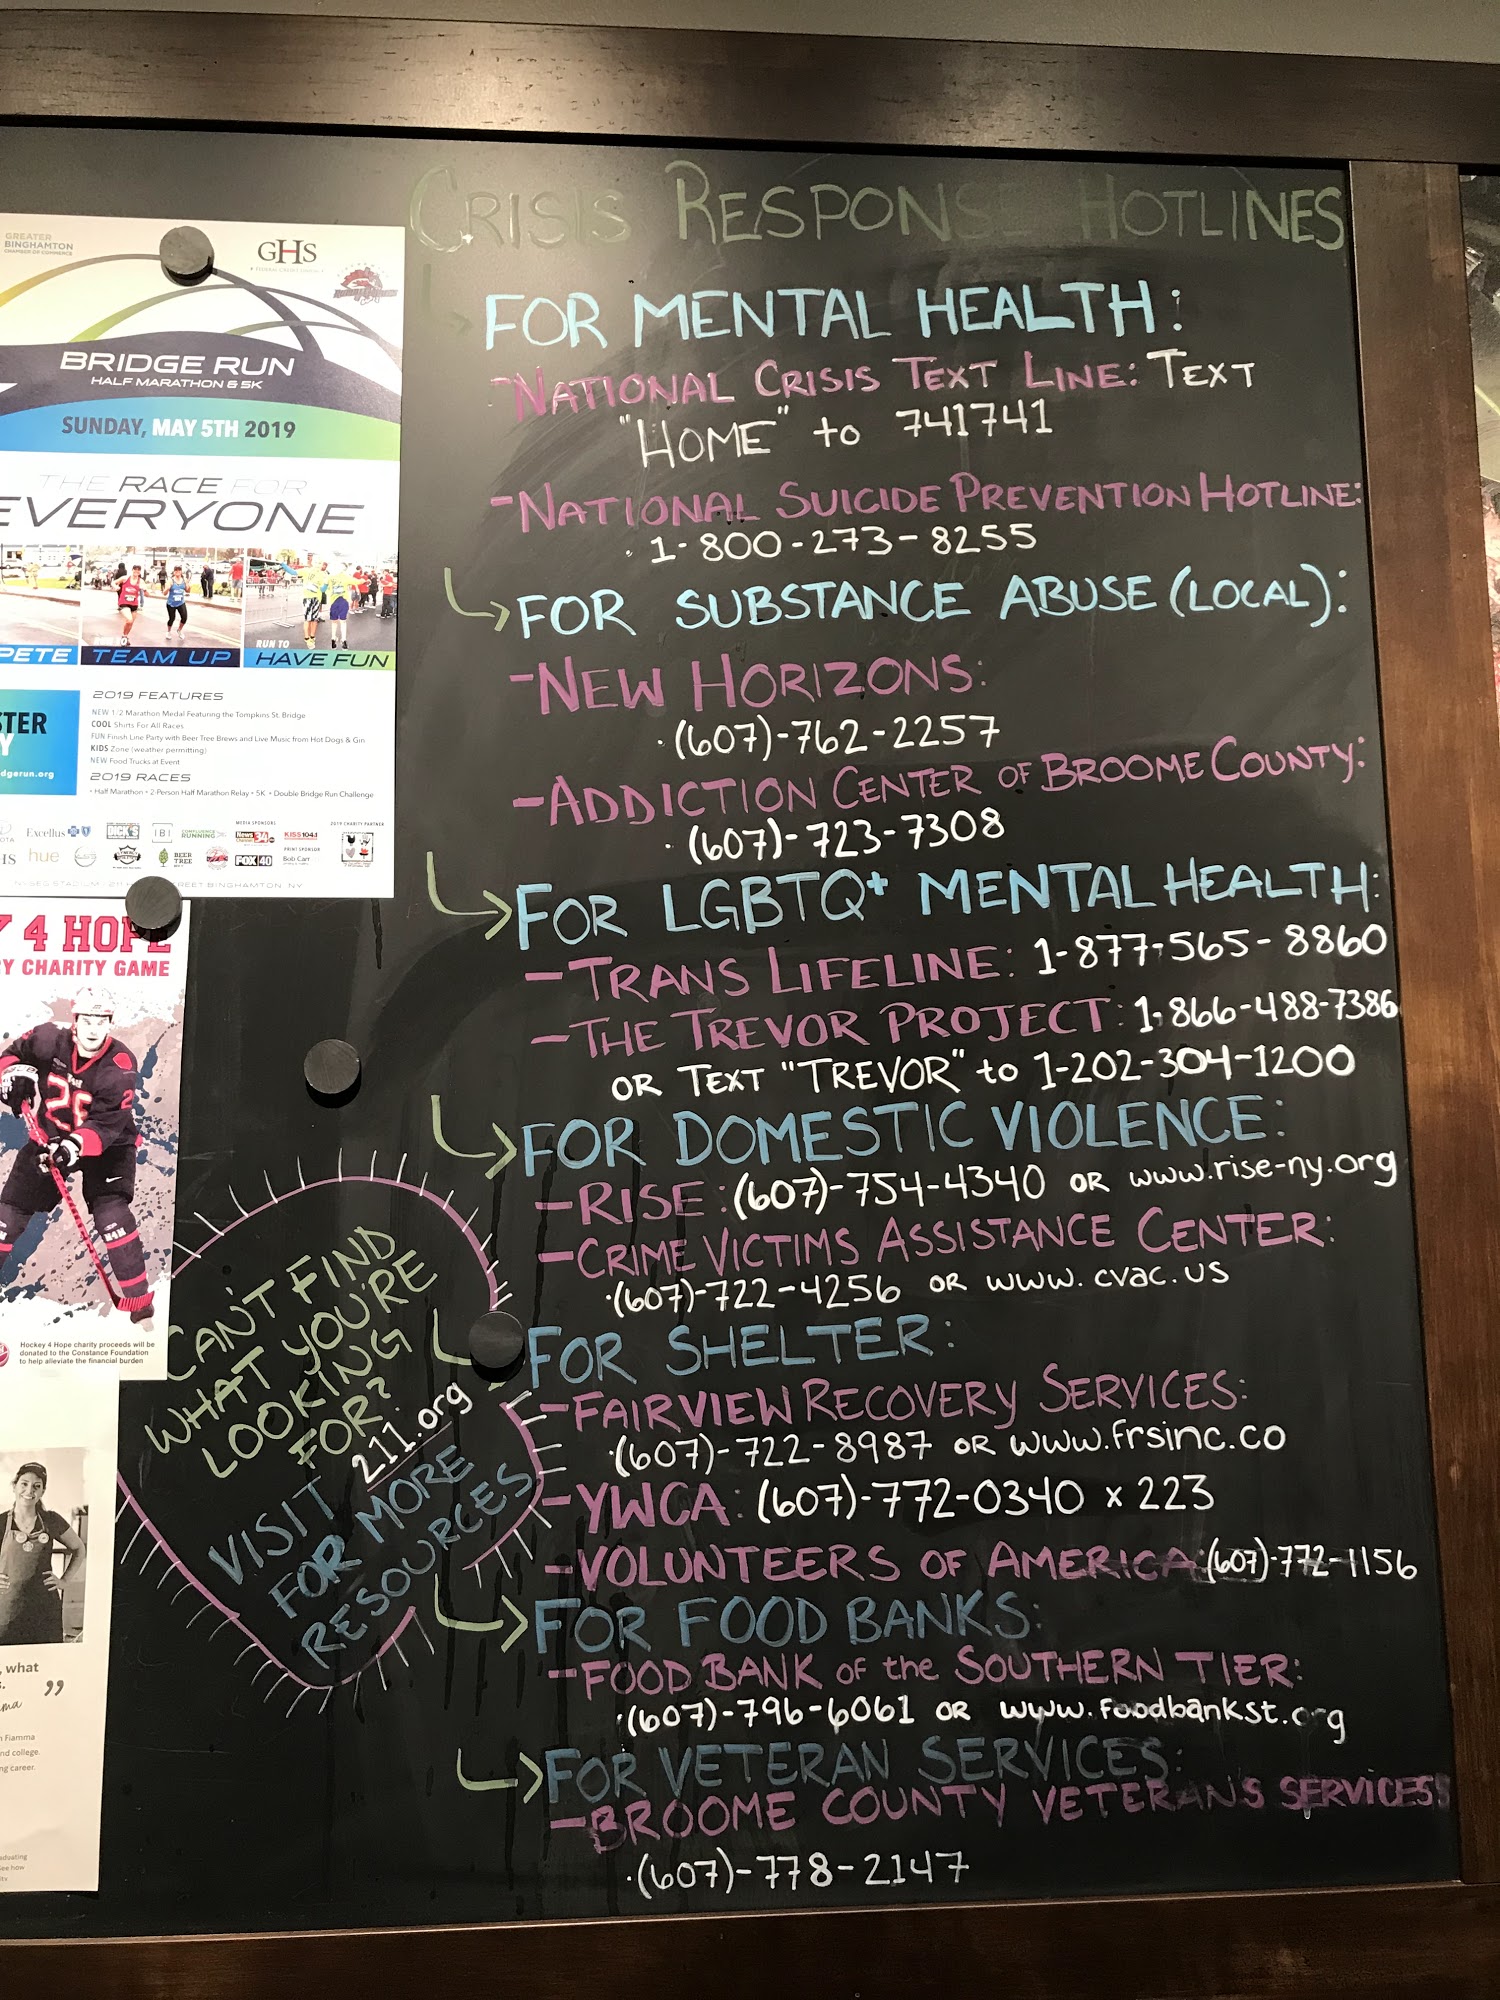 GREATER
BINGHAMTON
CHAMBER OF COMMERCE
GHS
FEDERAL CREDIT UNION
BRIDGE RUN
HALF MARATHON & 5K
SUNDAY, MAY 5TH 2019
THE RACE FOR
EVERYONE
PETE
RUN TO
TEAM UP
RUN TO
HAVE FUN
2019 FEATURES
NEW 1/2 Marathon Medal Featuring the Tompkins St. Bridge
COOL Shirts For All Races
FUN Finish Line Party with Beer Tree Brews and Live Music from Hot Dogs & Gin
KIDS Zone (weather permitting)
NEW Food Trucks at Event
2019 RACES
• Half Marathon • 2-Person Half Marathon Relay • 5K • Double Bridge Run Challenge
STER
Y
dgerun.org
MEDIA SPONSORS
2019 CHARITY PARTNER
OTA
Excellus
DICK'S
IBI
CONFLUENCE
RUNNING
News
34
KISS 104.1
PRINT SPONSOR
HS
hue
BEER
TREE
FOX 40
Bob Carr
STREET BINGHAMTON, NY
Y 4 HOPE
RY CHARITY GAME
25
Hockey 4 Hope charity proceeds will be
donated to the Constance Foundation
to help alleviate the financial burden
, what
s.
”
Fiamma
nd college.
ng career.
aduating
See how
CRISIS RESPONSE HOTLINES
FOR MENTAL HEALTH:
-NATIONAL CRISIS TEXT LINE: TEXT
"HOME" to 741741
-NATIONAL SUICIDE PREVENTION HOTLINE:
· 1-800-273-8255
FOR SUBSTANCE ABUSE (LOCAL):
-NEW HORIZONS:
· (607)-762-2257
-ADDICTION CENTER OF BROOME COUNTY:
· (607)-723-7308
FOR LGBTQ+ MENTAL HEALTH:
-TRANS LIFELINE: 1-877-565-8860
-THE TREVOR PROJECT: 1-866-488-7386
OR TEXT "TREVOR" to 1-202-304-1200
FOR DOMESTIC VIOLENCE:
-RISE: (607)-754-4340 OR www.rise-ny.org
-CRIME VICTIMS ASSISTANCE CENTER:
·(607)-722-4256 OR www.cvac.us
FOR SHELTER:
-FAIRVIEW RECOVERY SERVICES:
·(607)-722-8987 OR www.frsinc.co
-YWCA: (607)-772-0340 x 223
-VOLUNTEERS OF AMERICA:(607)-772-1156
FOR FOOD BANKS:
-FOOD BANK of the SOUTHERN TIER:
·(607)-796-6061 OR www.foodbankst.org
FOR VETERAN SERVICES:
-BROOME COUNTY VETERANS SERVICES:
·(607)-778-2147
CAN'T FIND
WHAT YOU'RE
LOOKING
FOR?
VISIT 211.org
FOR MORE
RESOURCES